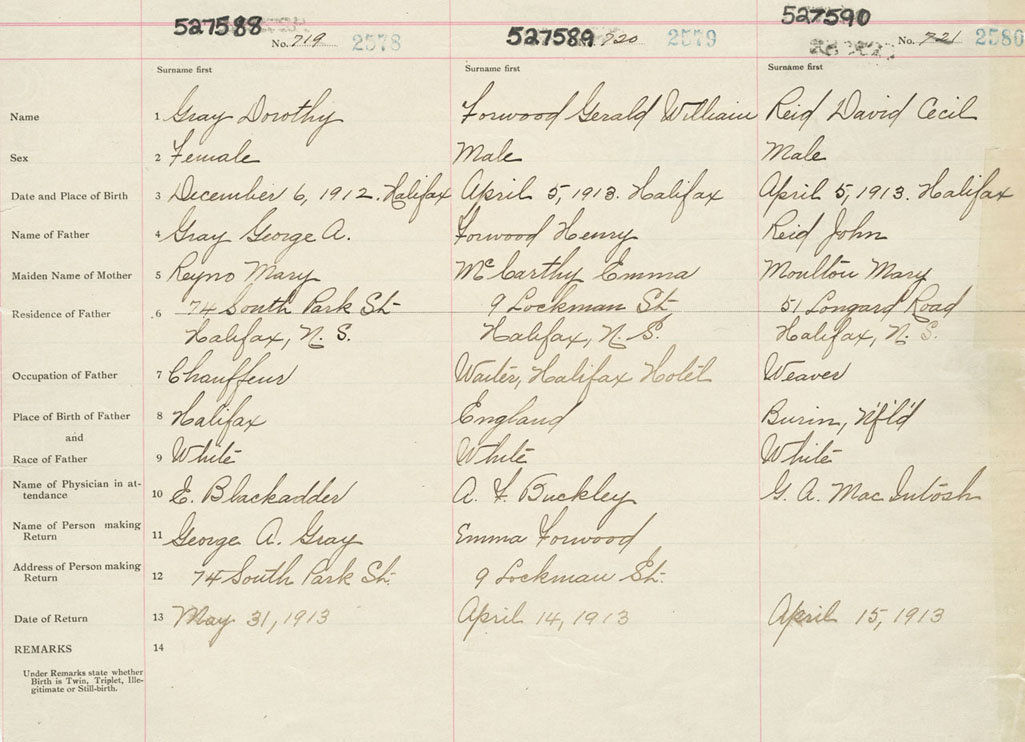 527588 527589 527590
No. 719 2578 720 2579 No. 721 2580
Surname first Surname first Surname first
Name 1 Gray Dorothy Forwood Gerald William Reid David Cecil
Sex 2 Female Male Male
Date and Place of Birth 3 December 6, 1912. Halifax April 5, 1913. Halifax April 5, 1913. Halifax
Name of Father 4 Gray George A. Forwood Henry Reid John
Maiden Name of Mother 5 Reyno Mary McCarthy Emma Moulton Mary
Residence of Father 6 74 South Park St. 9 Lockman St. 51 Longard Road
Halifax, N. S. Halifax, N. S. Halifax, N. S.
Occupation of Father 7 Chauffeur Waiter, Halifax Hotel Weaver
Place of Birth of Father 8 Halifax England Burin, N'f'l'd
and
Race of Father 9 White White White
Name of Physician in at-
tendance 10 E. Blackadder A. F. Buckley G. A. MacIntosh
Name of Person making
Return 11 George A. Gray Emma Forwood
Address of Person making
Return 12 74 South Park St. 9 Lockman St.
Date of Return 13 May 31, 1913 April 14, 1913 April 15, 1913
REMARKS 14
Under Remarks state whether
Birth is Twin, Triplet, Ille-
gitimate or Still-birth.